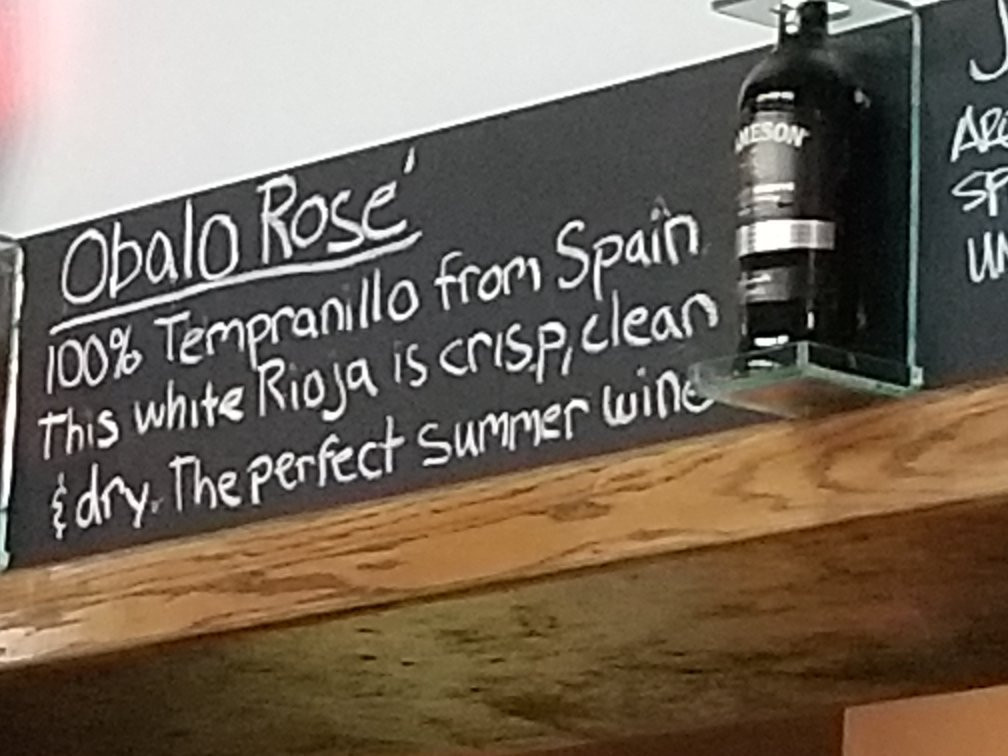 Obalo Rosé
100% Tempranillo from Spain
This white Rioja is crisp, clean
& dry. The perfect summer wine
AMESON
J
AR
SP
UN